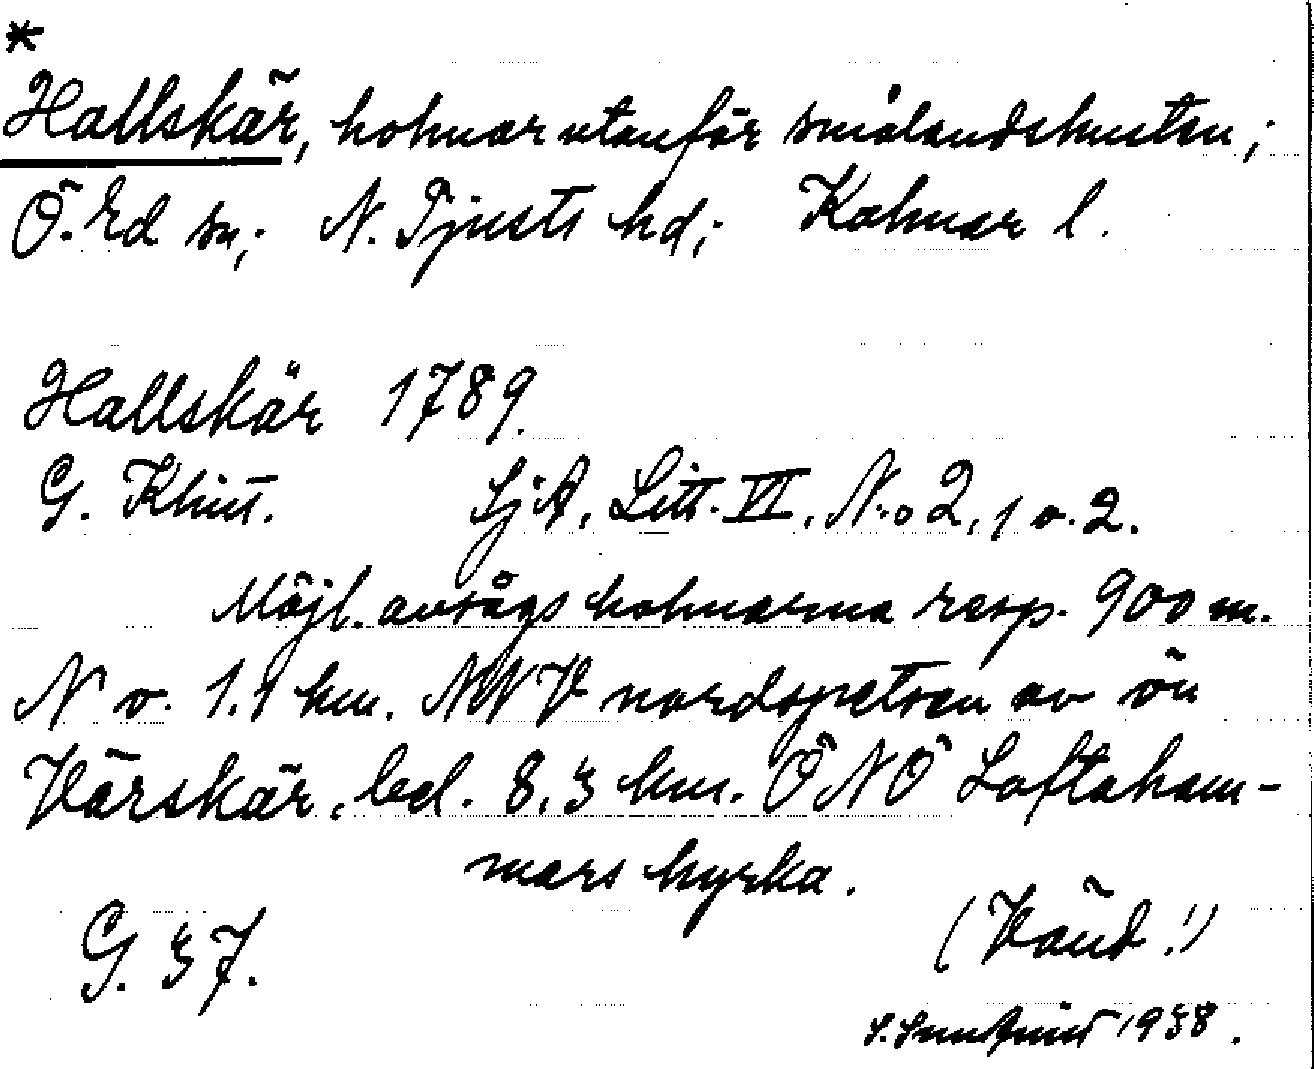 *
Hallskär, holmar utanför smålandskusten;
Ö. Ed sn; N. Tjusts hd; Kalmar l.
Hallskär 1789.
G. Klint. SjA, Litt. VI, N:o 2, 1 o. 2.
Möjl. avsågs holmarna resp. 900 m.
N o. 1.1 km. NNV nordspetsen av ön
Vårskär, bel. 8,3 km. ÖNÖ Loftaham-
mars kyrka.
G. 37. (Vänd!)
1938.